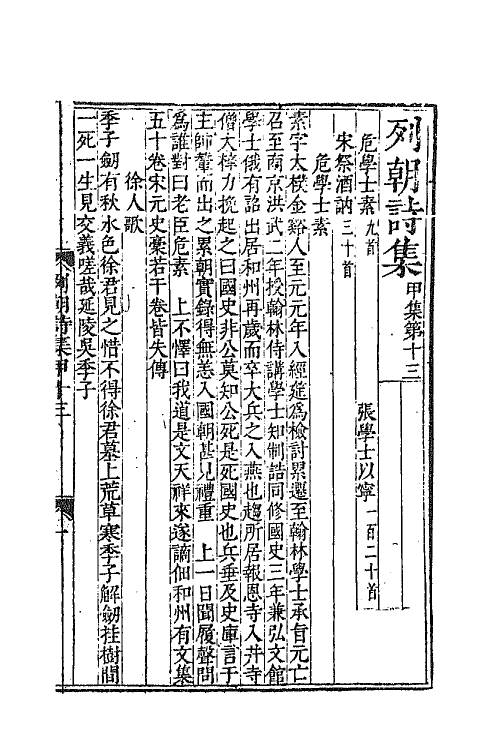 列朝詩集 甲集第十三
危學士素九首
張學士以寧一百二十首
宋祭酒訥三十首
危學士素
素字大樸金谿人至元元年入經筵爲檢討累遷至翰林學士承旨元亡
召至南京洪武二年授翰林侍講學士知制誥同修國史三年兼弘文館
學士俄有詔出居和州再歲而卒大兵之入燕也趨所居報恩寺入井寺
僧大梓力挽起之曰國史非公莫知公死是死國史也兵垂及史庫言于
主帥輦而出之累朝實錄得無恙入國朝甚見禮重 上一日聞履聲問
爲誰對曰老臣危素 上不懌曰我道是文天祥來遂謫佃和州有文集
五十卷宋元史稾若干卷皆失傳
徐人歌
季子劒有秋水色徐君見之惜不得徐君墓上荒草寒季子解劒挂樹間
一死一生見交義嗟哉延陵吳季子
列朝詩集甲十三
一